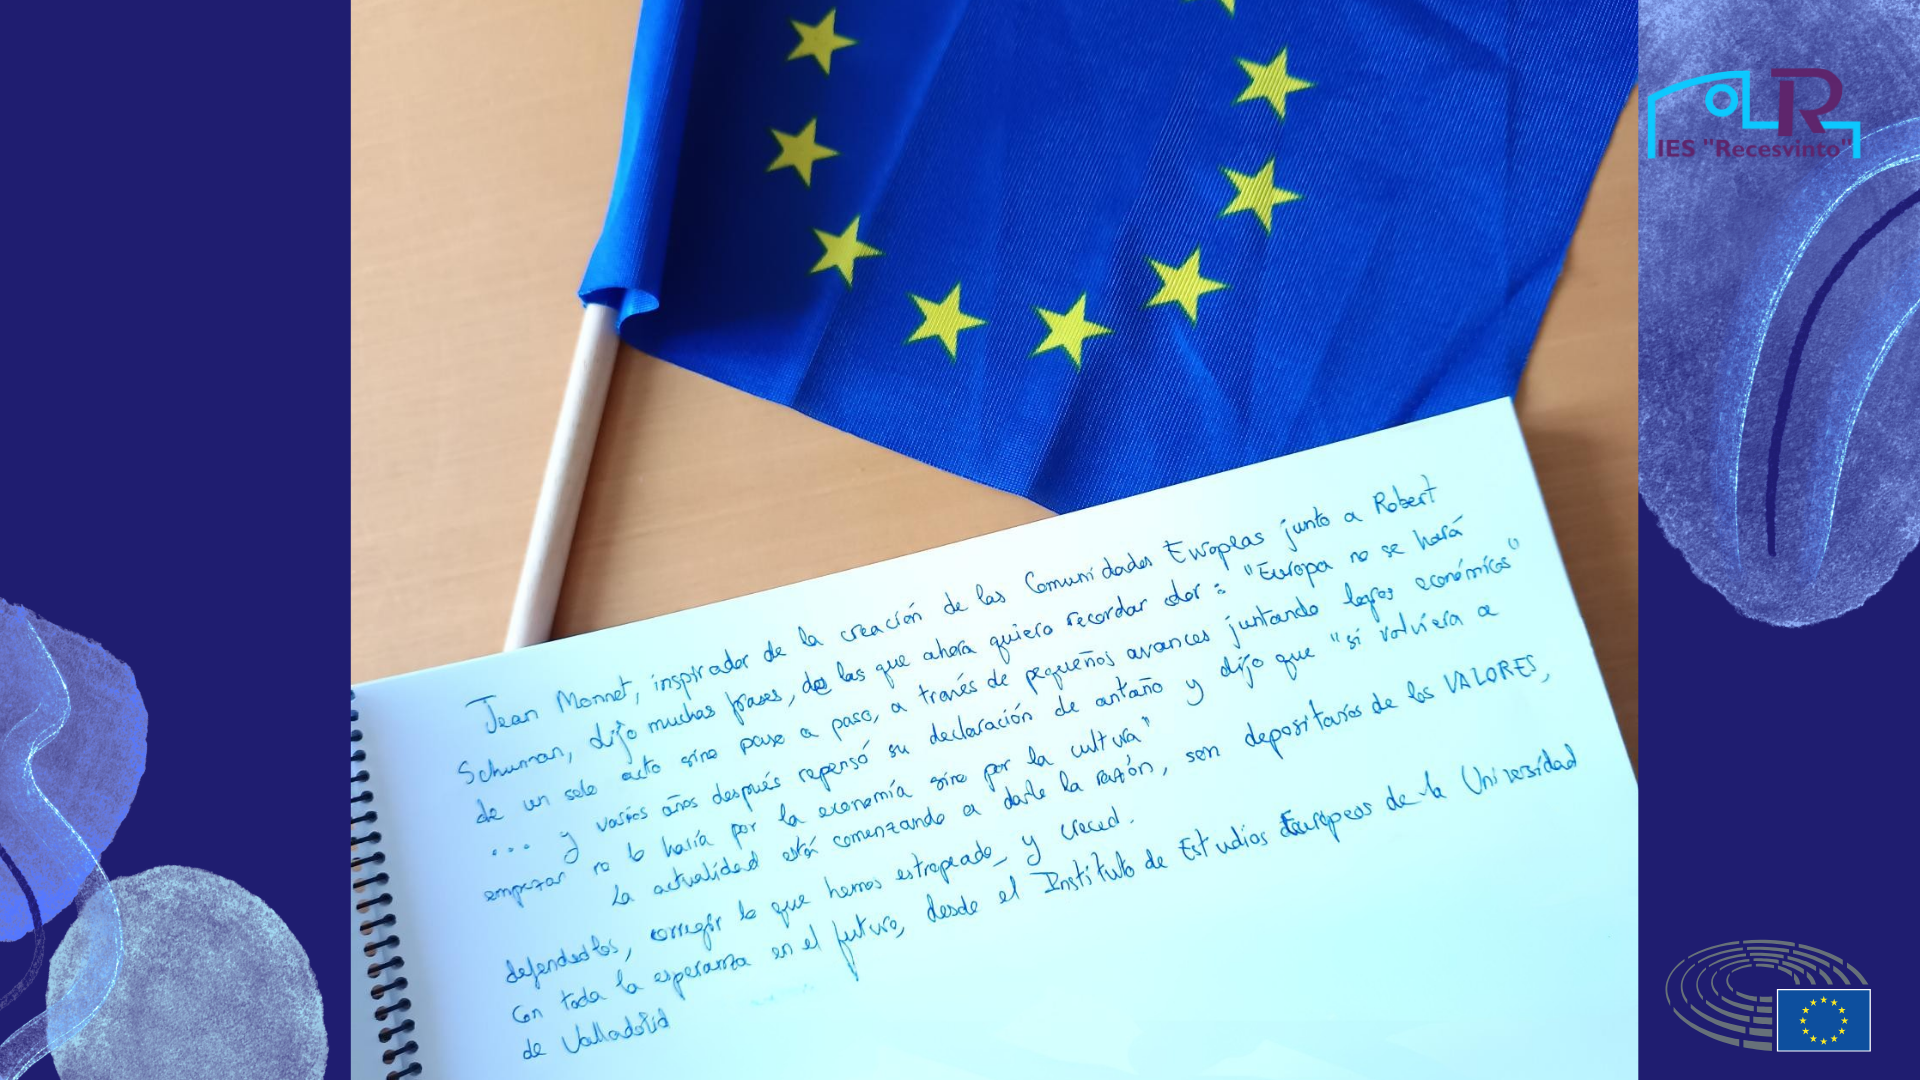 IES "Recesvinto"
Jean Monnet, inspirador de la creación de las Comunidades Europeas junto a Robert
Schuman, dijo muchas frases, de las que ahora quiero recordar dos: "Europa no se hará
de un solo acto sino paso a paso, a través de pequeños avances juntando logros económicos"
... y varios años después repensó su declaración de antaño y dijo que "si volviera a
empezar no lo haría por la economía sino por la cultura"
La actualidad está comenzando a darle la razón, son depositarios de los VALORES,
defendedlos, corregir lo que hemos estropeado, y creced.
Con toda la esperanza en el futuro, desde el Instituto de Estudios Europeos de la Universidad
de Valladolid